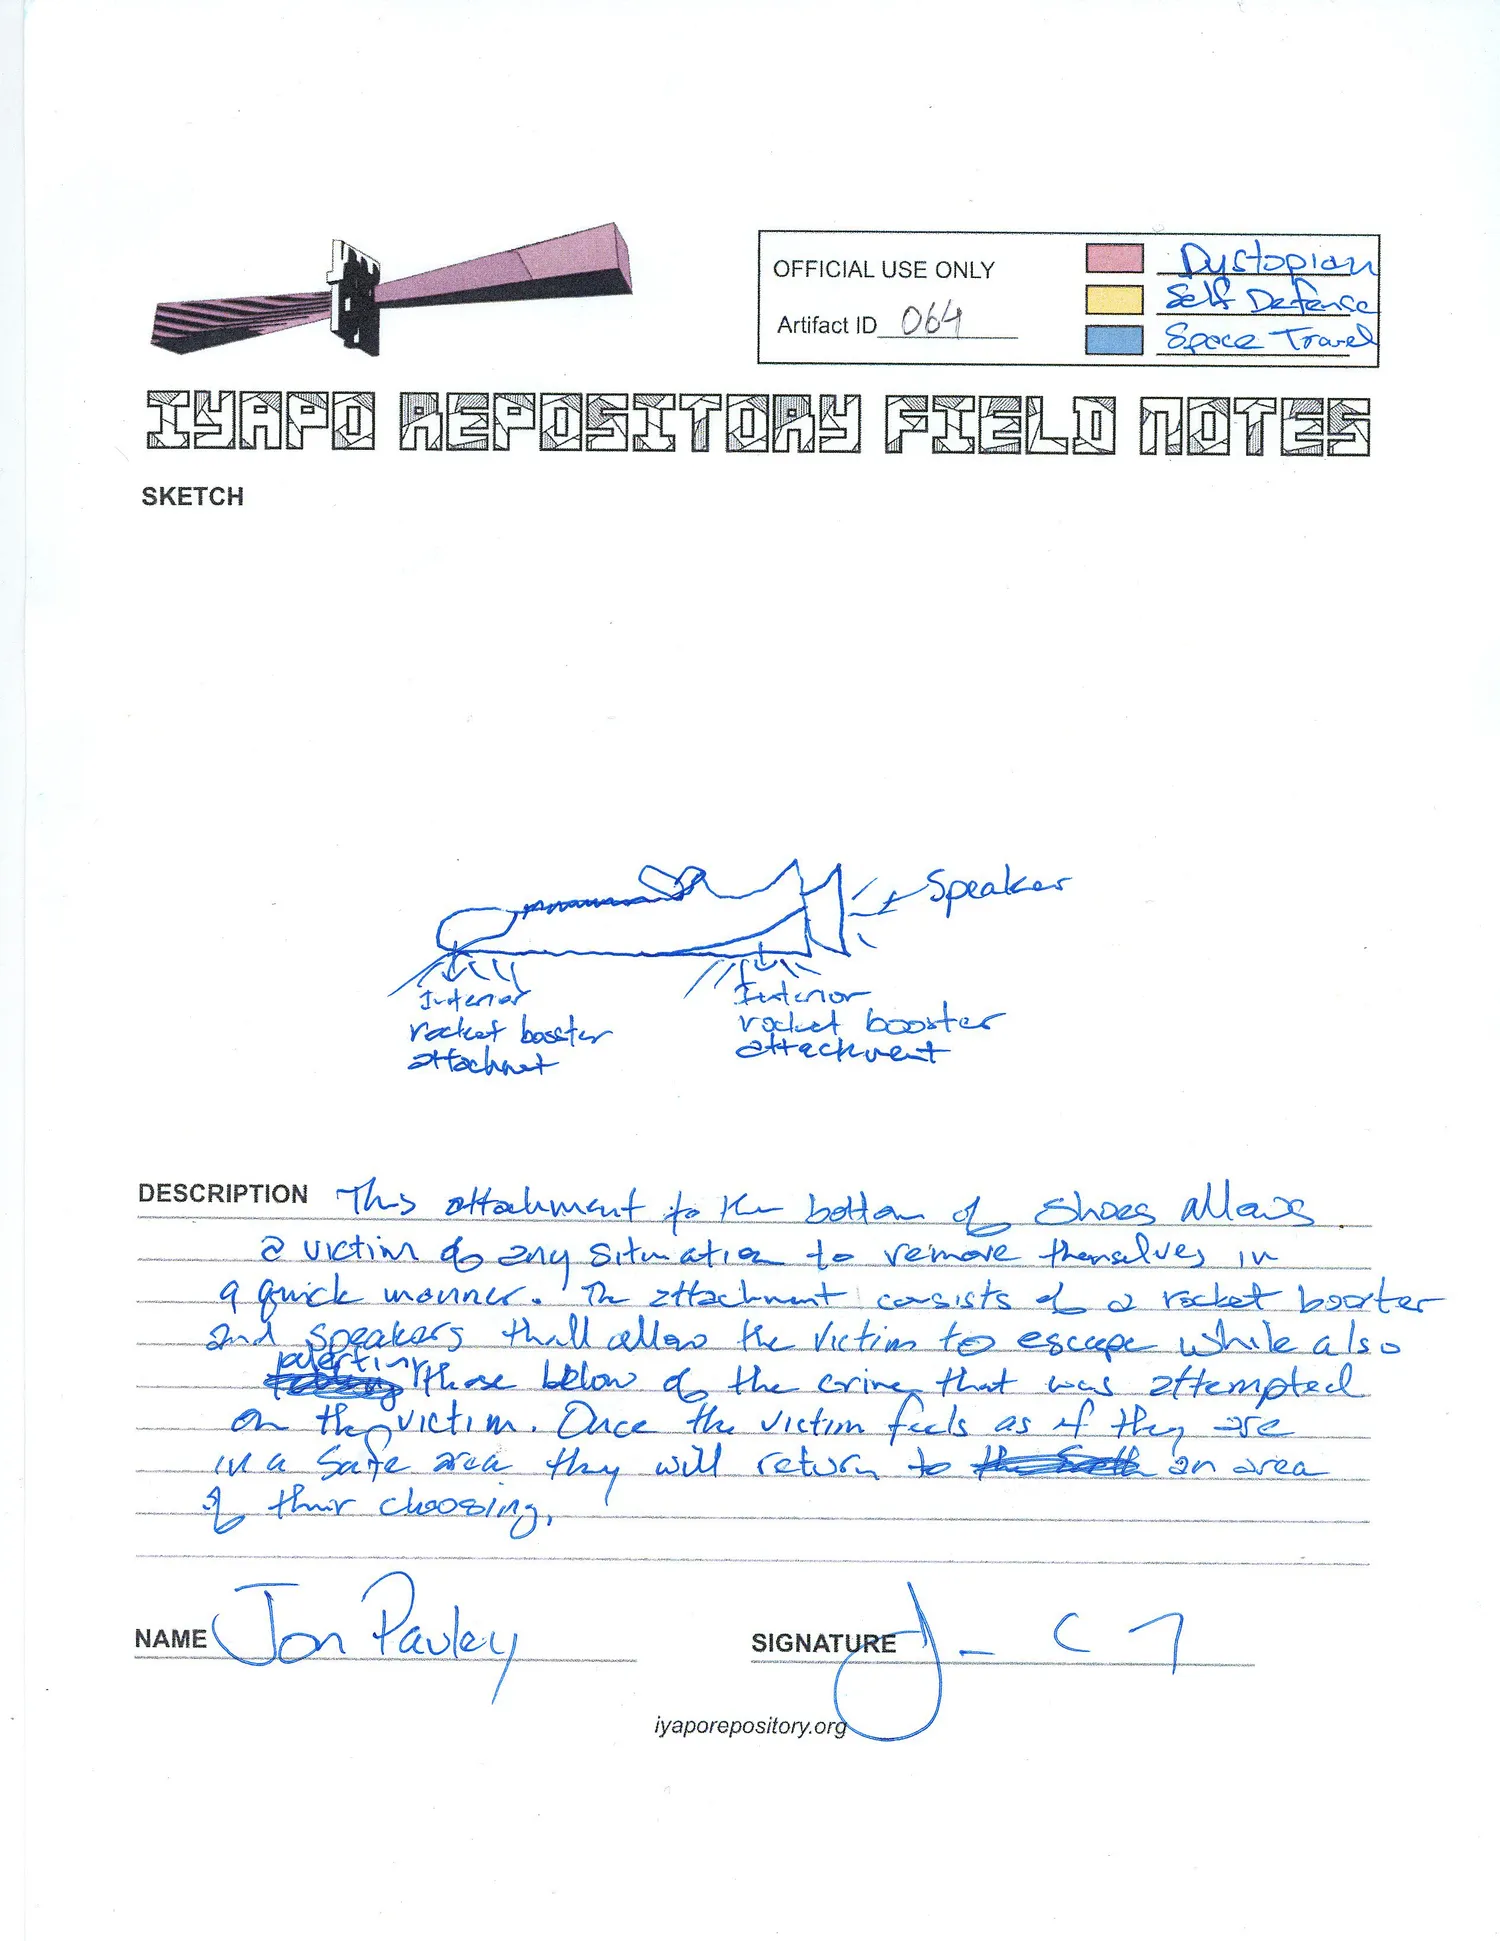 OFFICIAL USE ONLY
Artifact ID 064
Dystopian
Self Defense
Space Travel
IYAPO REPOSITORY FIELD NOTES
SKETCH
Speaker
Interior
rocket booster
attachmet
Interior
rocket booster
attachment
DESCRIPTION This attachment to the bottom of shoes allows
a victim of any situation to remove themselves in
a quick manner. The attachment consists of a rocket booster
and speakers thall allow the victim to escape while also
alerting those below of the crime that was attempted
on the victim. Once the victim feels as if they are
in a safe area they will return to an area
of their choosing.
NAME Jon Pauley
SIGNATURE
iyaporepository.org